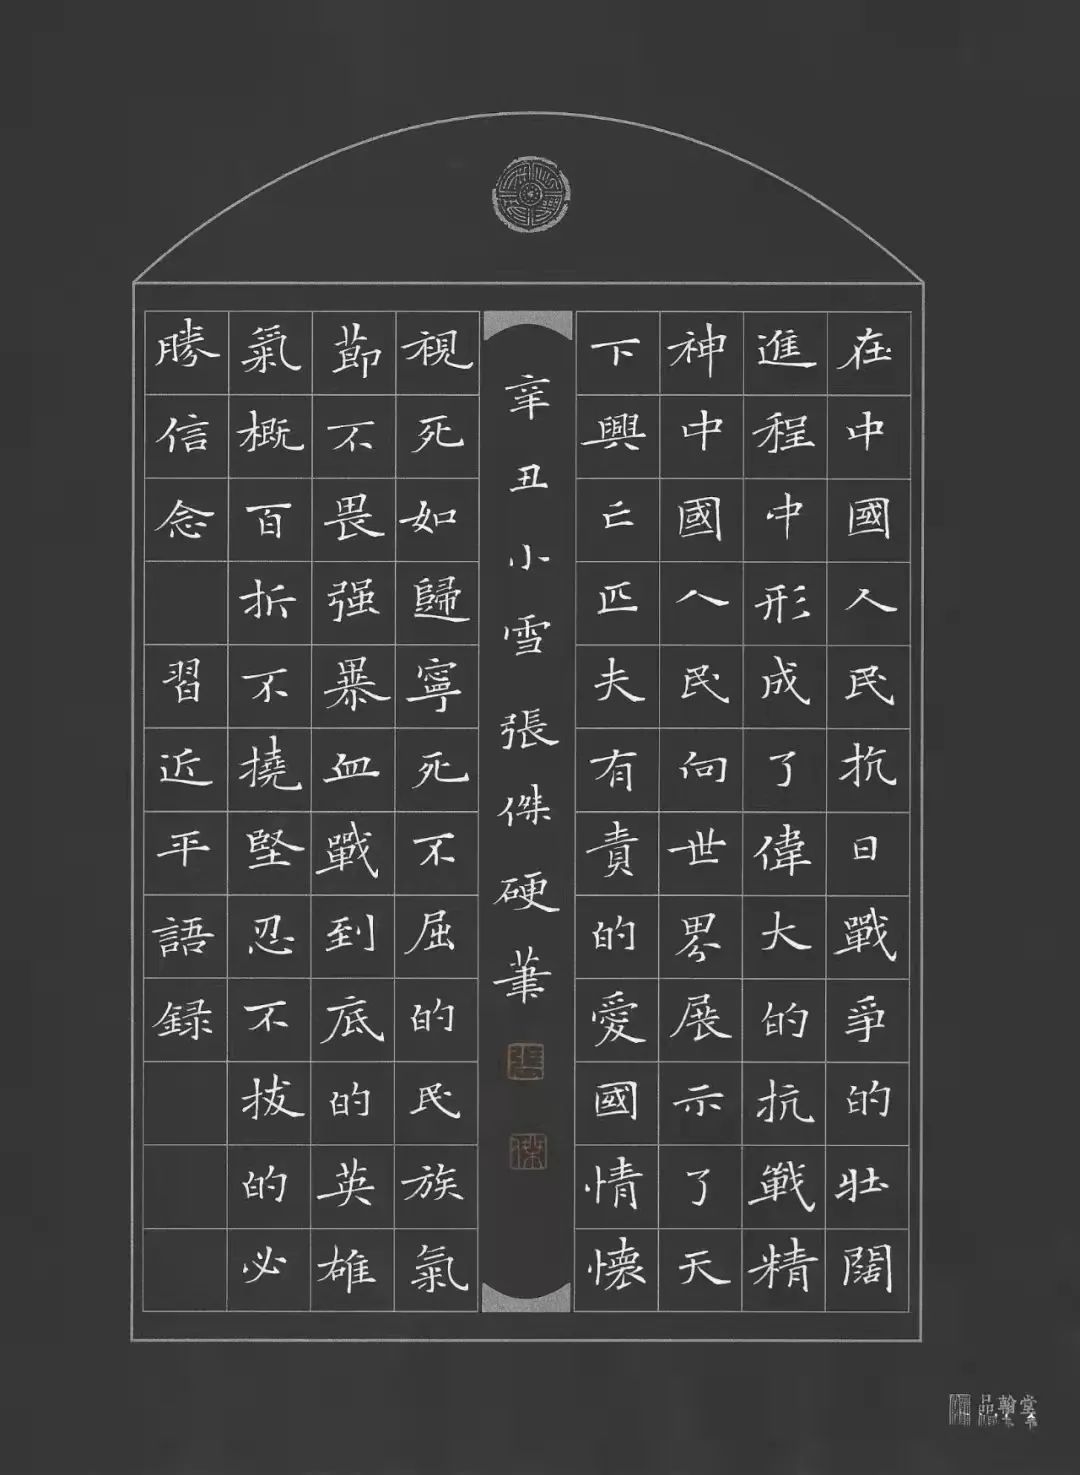 在中國人民抗日戰爭的壯闊
進程中形成了偉大的抗戰精
神中國人民向世界展示了天
下興亡匹夫有責的愛國情懷
視死如歸寧死不屈的民族氣
節不畏强暴血戰到底的英雄
氣概百折不撓堅忍不拔的必
勝信念 習近平語録
辛丑小雪張傑硬筆
張
傑
品翰堂